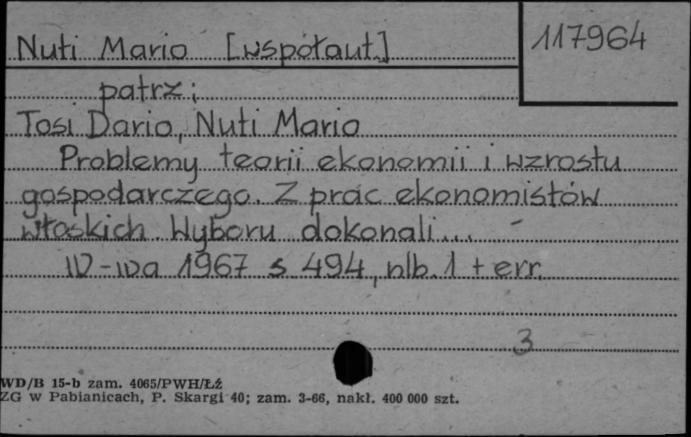 Nuti Mario [współaut.]
117964
patrz:
Tosi Dario, Nuti Mario
Problemy teorii ekonomii i wzrostu
gospodarczego. Z prac ekonomistów
włoskich. Wyboru dokonali...
W-wa 1967 s 494, nlb. 1 + err.
3
WD/B 15-b zam. 4065/PWH/Łź
ZG w Pabianicach, P. Skargi 40; zam. 3-66, nakł. 400 000 szt.